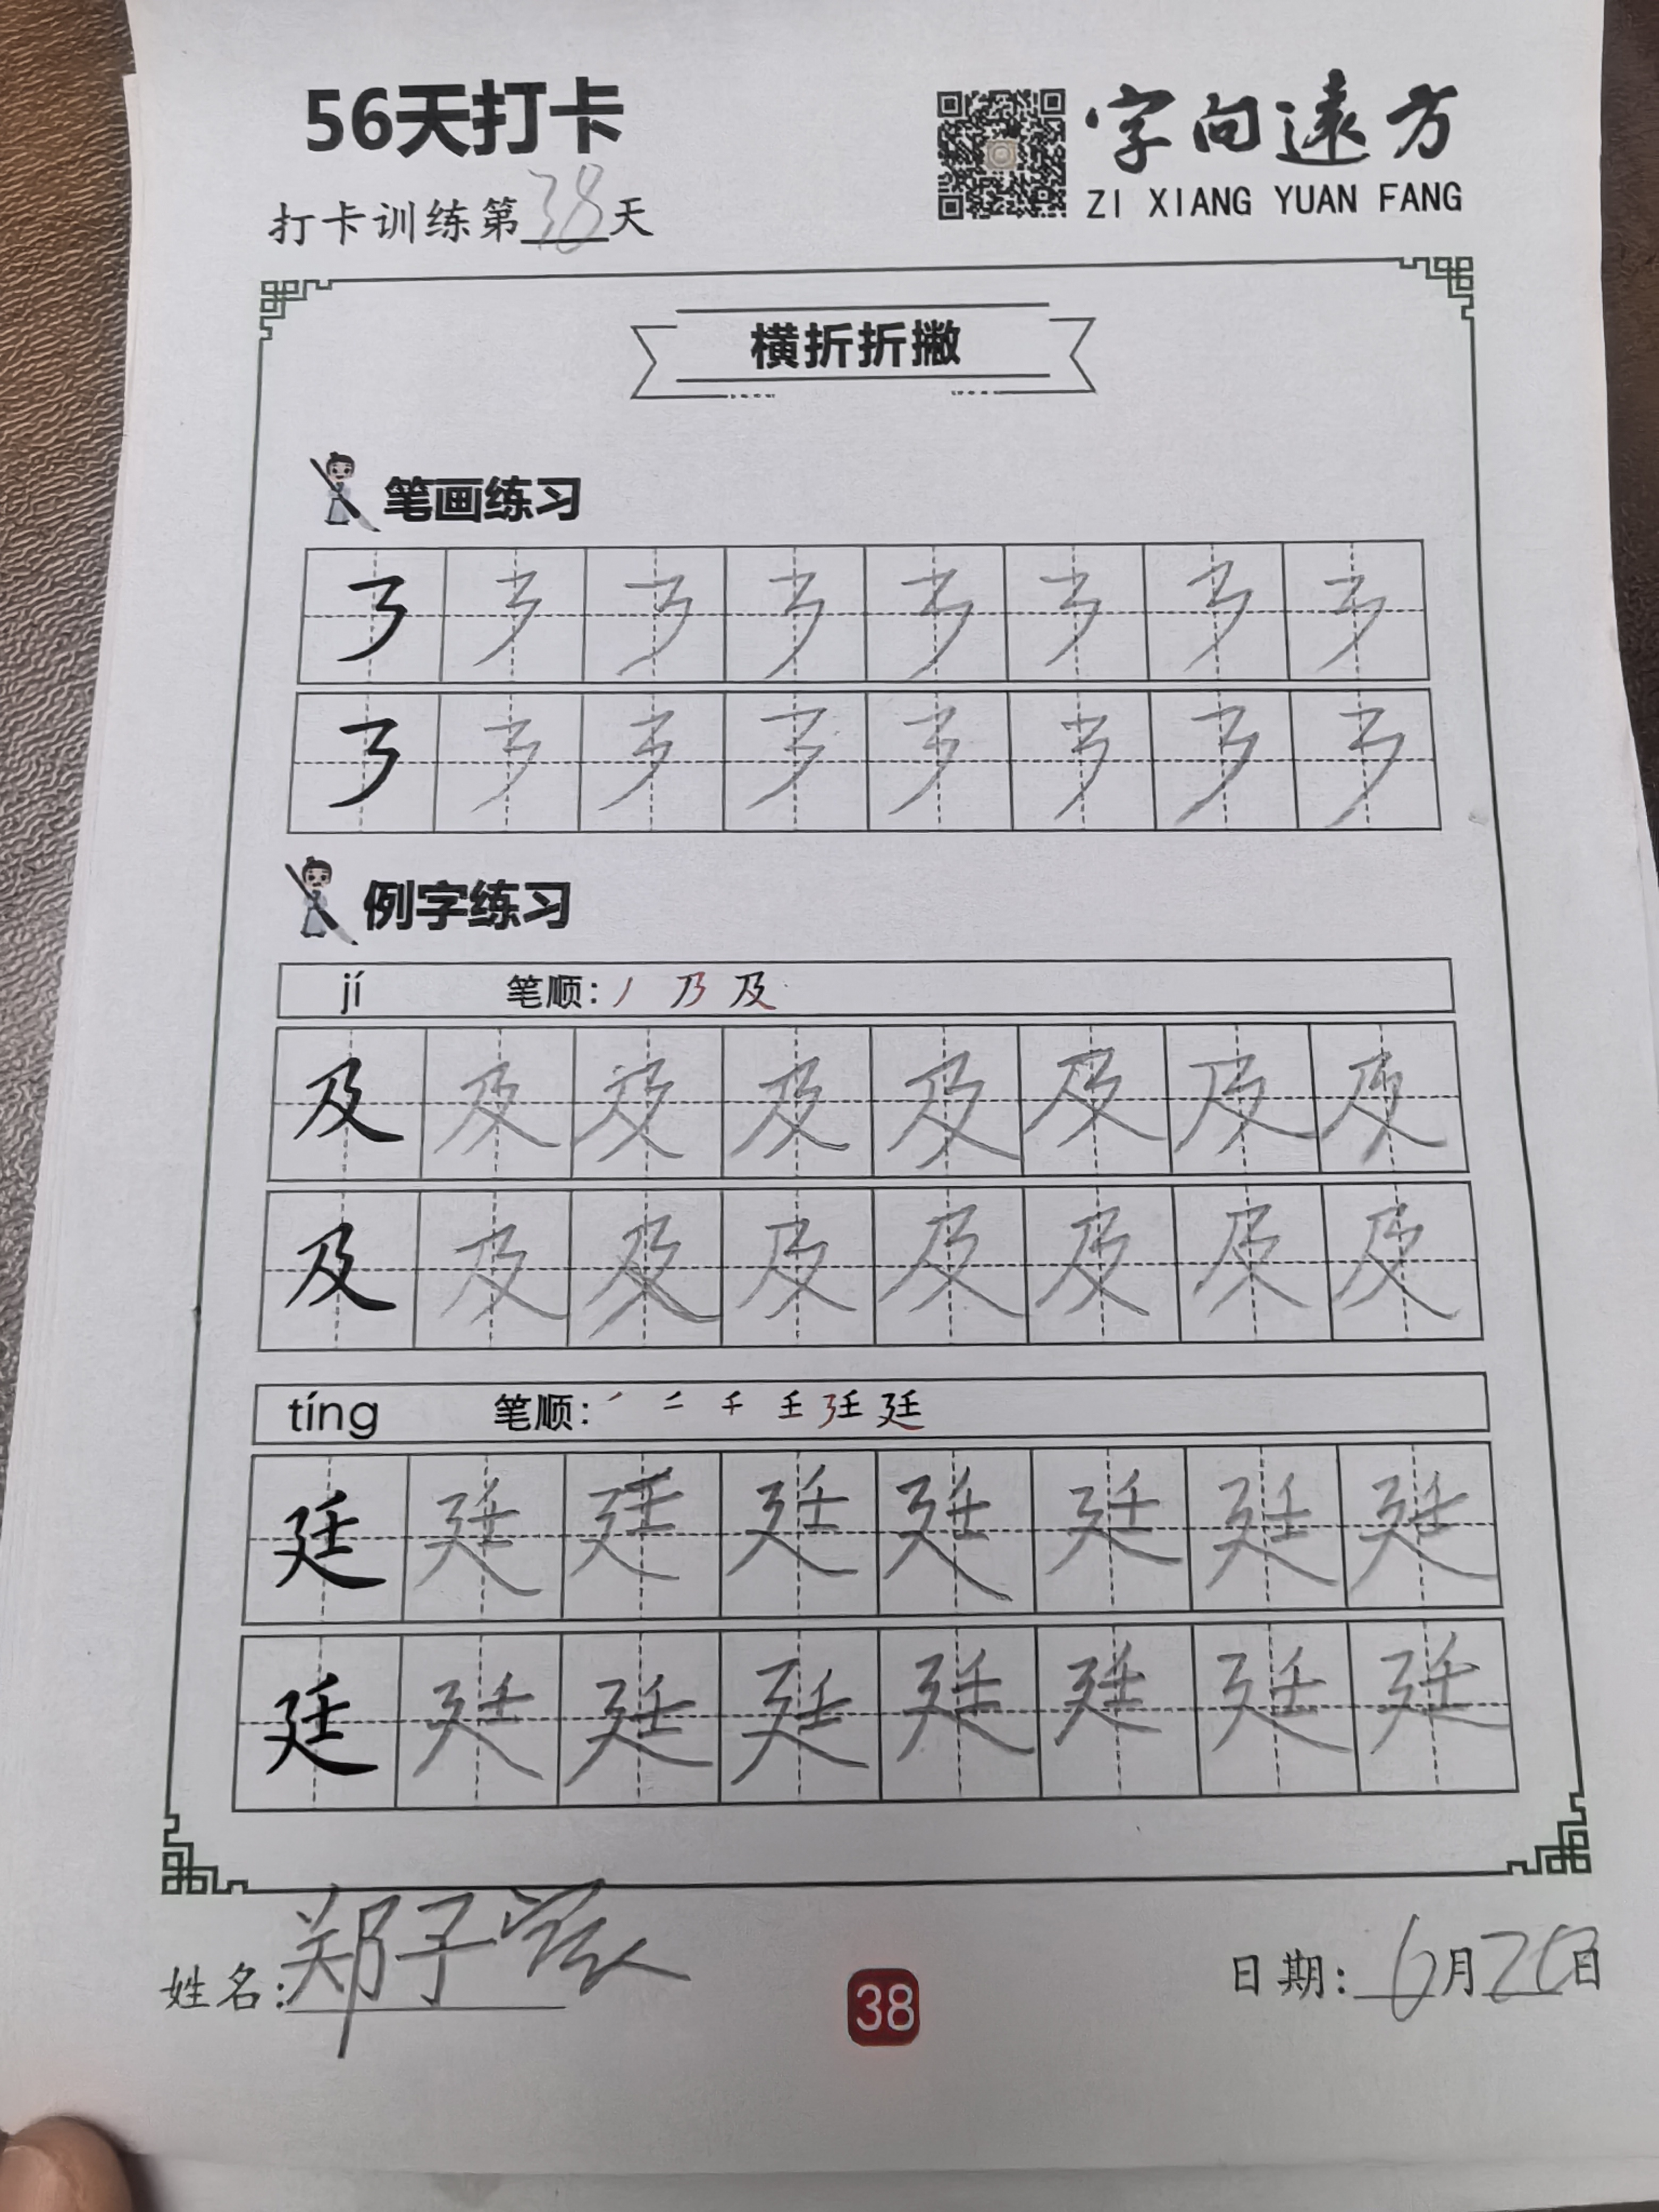 56天打卡
字向遠方
ZI XIANG YUAN FANG
打卡训练第38天
横折折撇
笔画练习
㇋ ㇋ ㇋ ㇋ ㇋ ㇋ ㇋ ㇋
㇋ ㇋ ㇋ ㇋ ㇋ ㇋ ㇋ ㇋
例字练习
jí 笔顺：丿 乃 及
及 及 及 及 及 及 及 及
及 及 及 及 及 及 及 及
tíng 笔顺：
廷 廷 廷 廷 廷 廷 廷 廷
廷 廷 廷 廷 廷 廷 廷 廷
姓名：郑子
38
日期：6月20日